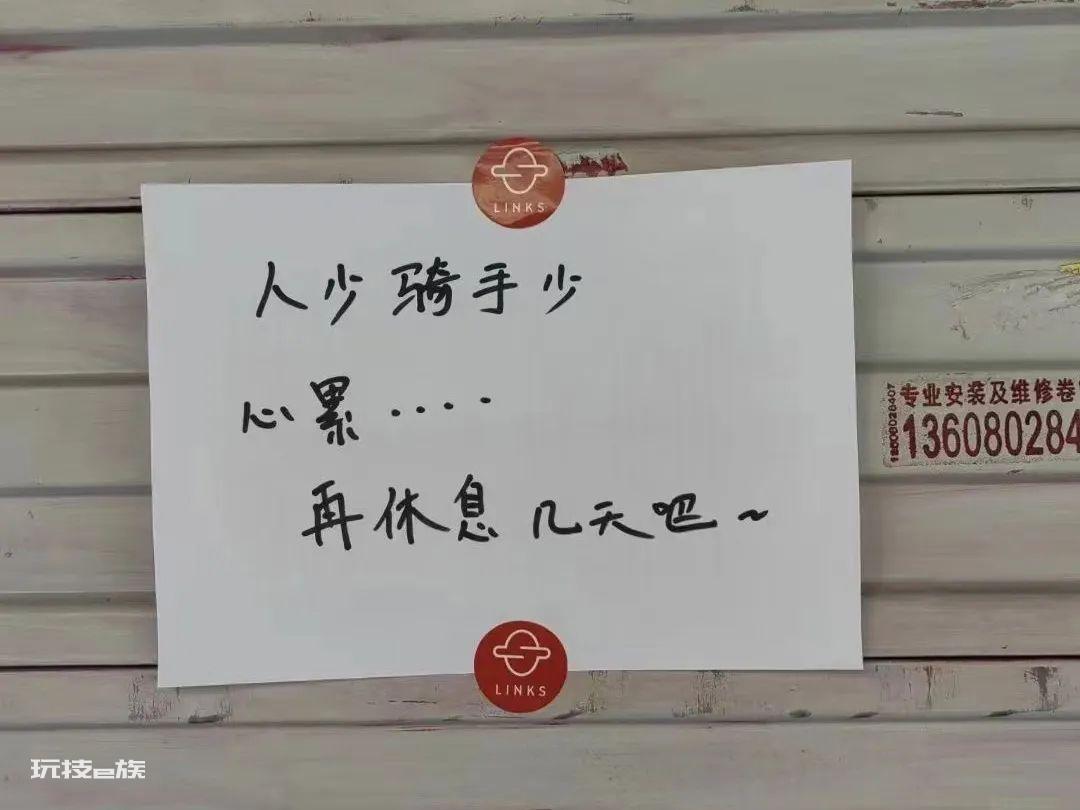 LINKS
人少 骑手少
心累····
再休息 几天吧~
专业安装及维修卷
136080284
13608028407
LINKS
玩技e族